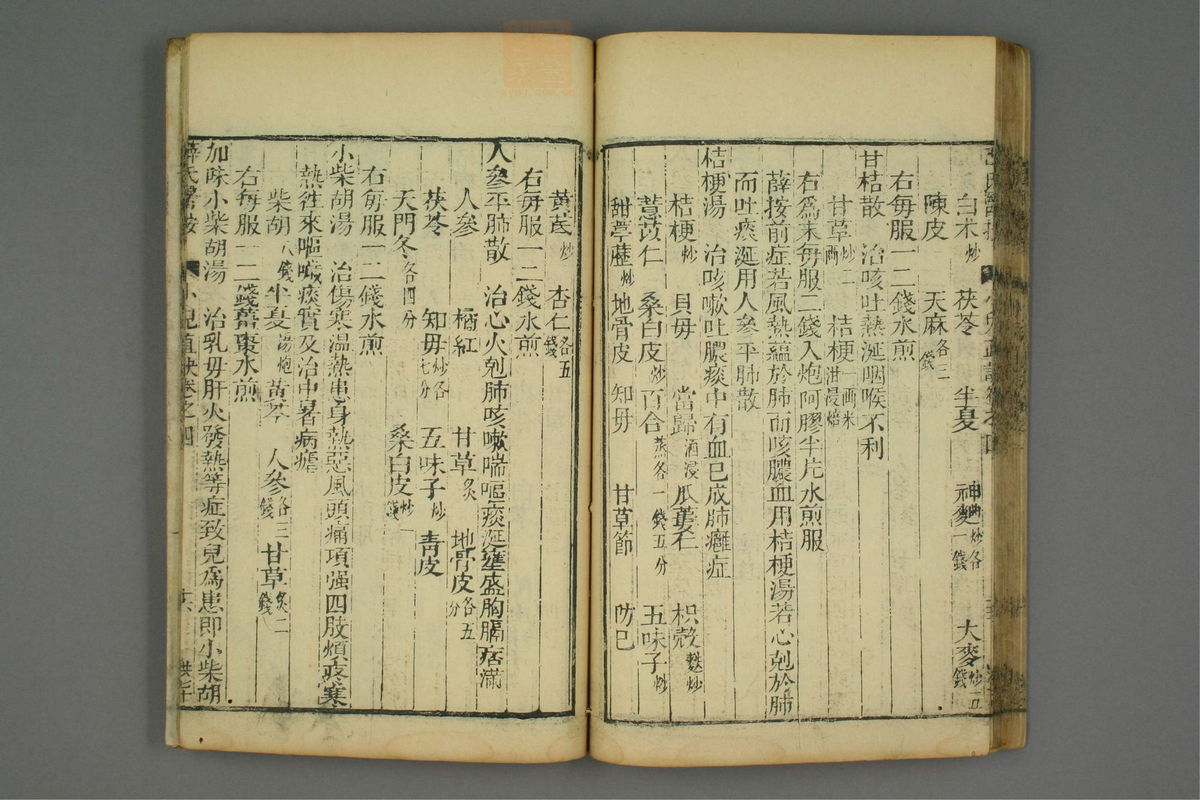 白朮炒　茯苓　半夏　神麯炒各一錢　大麥炒一五錢
陳皮　天麻各二錢
右每服一二錢水煎
甘桔散　治咳吐熱涎咽喉不利
甘草炒二兩　桔梗一兩米泔浸焙
右爲末每服二錢入炮阿膠半片水煎服
薛按前症若風熱蘊於肺而咳膿血用桔梗湯若心剋於肺
而吐痰涎用人參平肺散
桔梗湯　治咳嗽吐膿痰中有血已成肺癰症
桔梗炒　貝毋　當歸酒浸　瓜蔞仁　枳殼麩炒
薏苡仁　桑白皮炒　百合蒸各一錢五分　五味子炒
甜葶藶炒　地骨皮　知毋　甘草節　防已
黃芪炒　杏仁各五錢
右每服一二錢水煎
人參平肺散　治心火剋肺咳嗽喘嘔痰涎壅盛胸膈痞滿
人參　橘紅　甘草炙　地骨皮各五分
茯苓　知毋炒各七分　五味子炒　青皮
天門冬各四分　桑白皮炒
右每服一二錢水煎
小柴胡湯　治傷寒温熱患身熱惡風頭痛項强四肢煩疼寒
熱徃來嘔噦痰實及治中暑病瘧
柴胡八錢　半夏湯炮　黃芩　人參各三錢　甘草炙二錢
右每服一二錢薑棗水煎
加味小柴胡湯　治乳毋肝火發熱等症致兒爲患即小柴胡
薛氏醫按　小兒直訣卷之四　十六